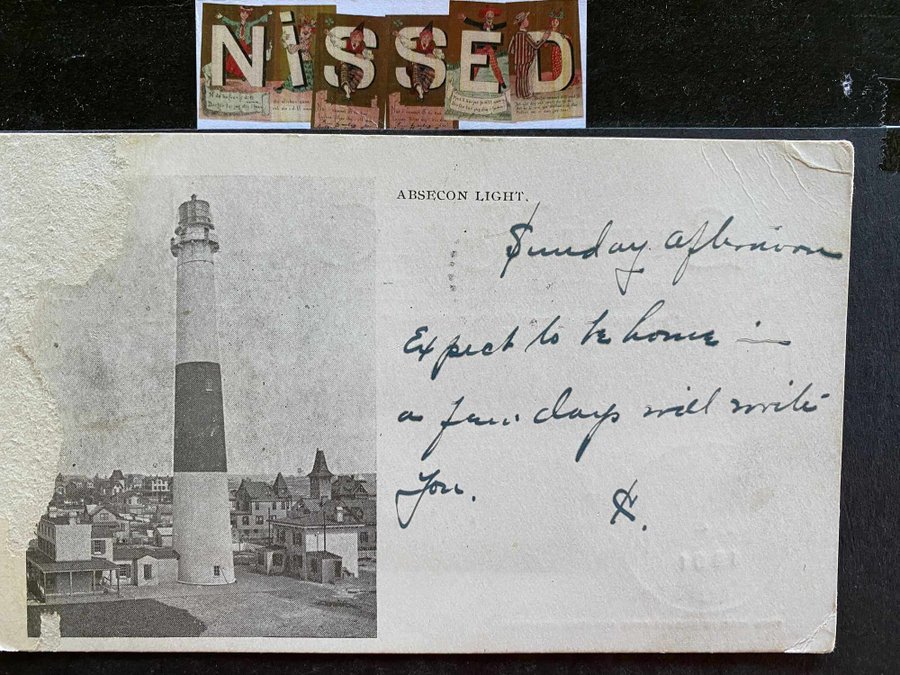 NiSSED
ABSECON LIGHT.
Sunday afternoon
Expect to be home in
a few days will write
you.